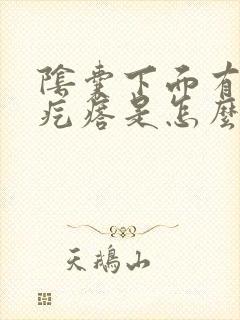 陰囊下面有
疙瘩是怎麼
天鵝山